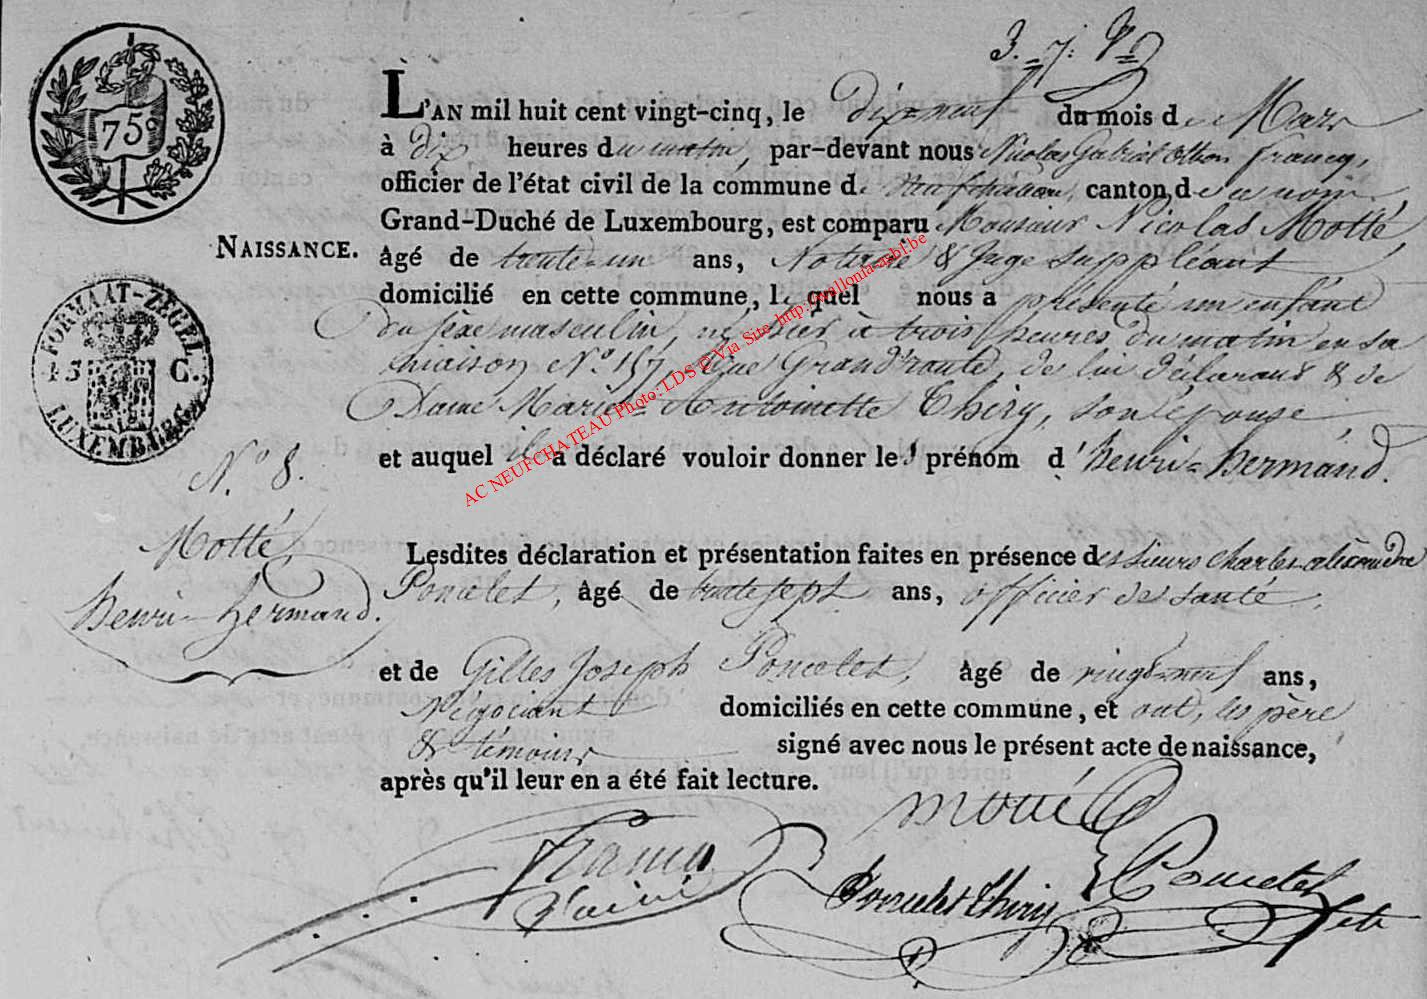 3. 7. 9
75
L'AN mil huit cent vingt-cinq, le Dix neuf du mois de Mars
à Dix heures du matin, par-devant nous Nicolas Gabriel Othon francq,
officier de l'état civil de la commune de Neufchateau, canton de ce nom
Grand-Duché de Luxembourg, est comparu Monsieur Nicolas Motté,
NAISSANCE.
âgé de trente-un ans, Notaire & Juge suppléant
domicilié en cette commune, lequel nous a présenté un enfant
du sèxe masculin, né hier à trois heures du matin en sa
maison N.o 157, rue Grand'route, de lui déclarant & de
Dame Marie-Antoinette Thiry, son épouse,
FORMAAT-ZEGEL
15 C.
LUXEMBURG
N.o 8.
et auquel il a déclaré vouloir donner les prénom d'henri-hermand.
Motté,
henri-hermand.
Lesdites déclaration et présentation faites en présence des sieurs Charles alèxandre
Poncelet, âgé de trente sept ans, officier de santé,
et de Gilles Joseph Poncelet, âgé de vingt-neuf ans,
Négociant domiciliés en cette commune, et ont, les père
& témoins signé avec nous le présent acte de naissance,
après qu'il leur en a été fait lecture.
Motté
Francq
Poncelet Thiry
Poncelet
AC NEUFCHATEAU Photo: LDS © Via Site http://wallonia-asbl.be